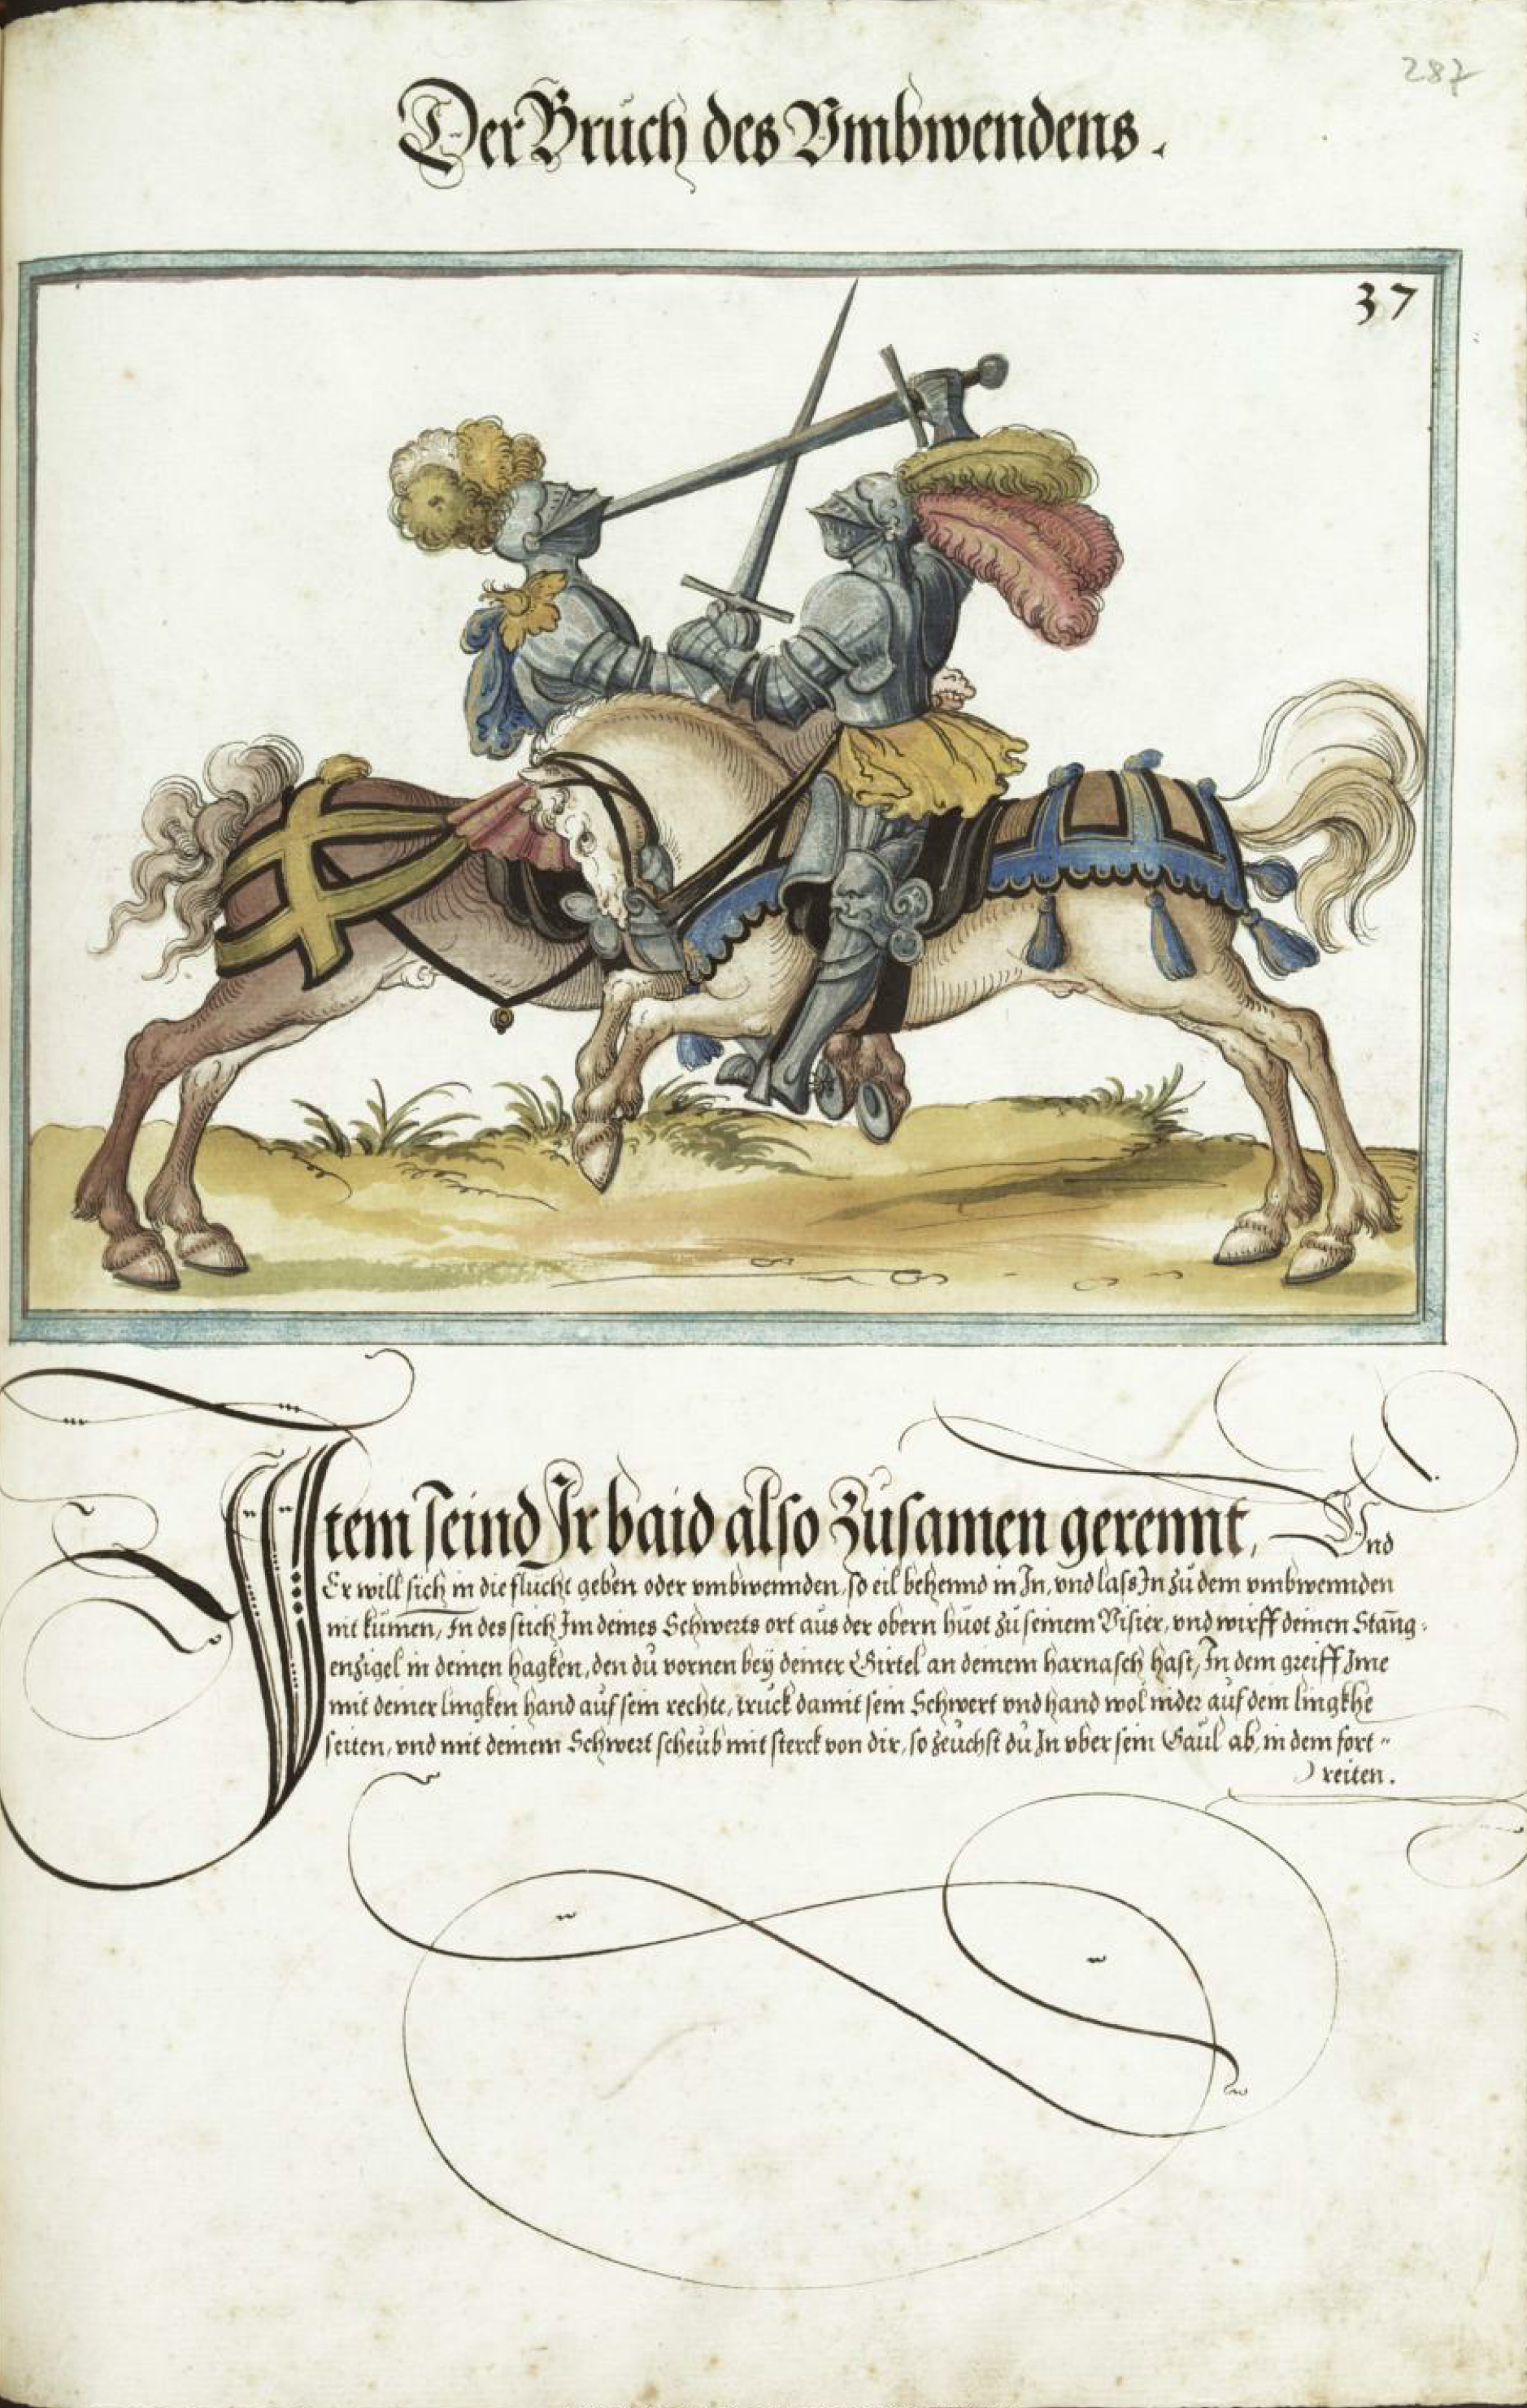 287
Der Bruch des Vmbwendens.
37
Item seind Ir baid also Zusamen gerennt, Vnd
Er will sich in die flucht geben oder vmbwennden, so eil behennd in In, vnd lass In zu dem vmbwennden
nit kumen, In des stich Im deines Schwerts ort aus der obern huot zu seinem Visier, vnd wirff deinen Stang-
enzigel in deinen hagken, den du vornen bey deiner Girtel an deinem harnasch hast, In dem greiff Ime
mit deiner lingken hand auf sein rechte, truck damit sein Schwert vnd hand wol nider auf dein lingkhe
seiten, vnd mit deinem Schwert scheub mit sterck von dir, so zeuchst du In vber sein Gaul ab, in dem fort-
reiten.